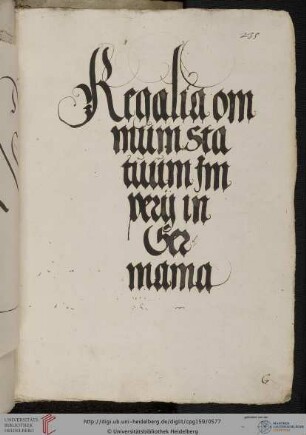 235
Regalia om
nium sta
tuum Im
perij in
Ger
mania
G
UNIVERSITÄTS-
BIBLIOTHEK
HEIDELBERG
http://digi.ub.uni-heidelberg.de/diglit/cpg159/0577
© Universitätsbibliothek Heidelberg